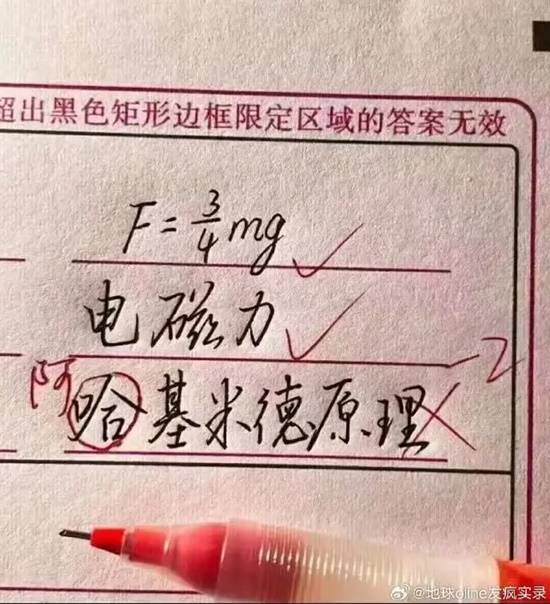 超出黑色矩形边框限定区域的答案无效
F=3/4mg
电磁力
-2
阿
哈基米德原理
@地球oline发疯实录